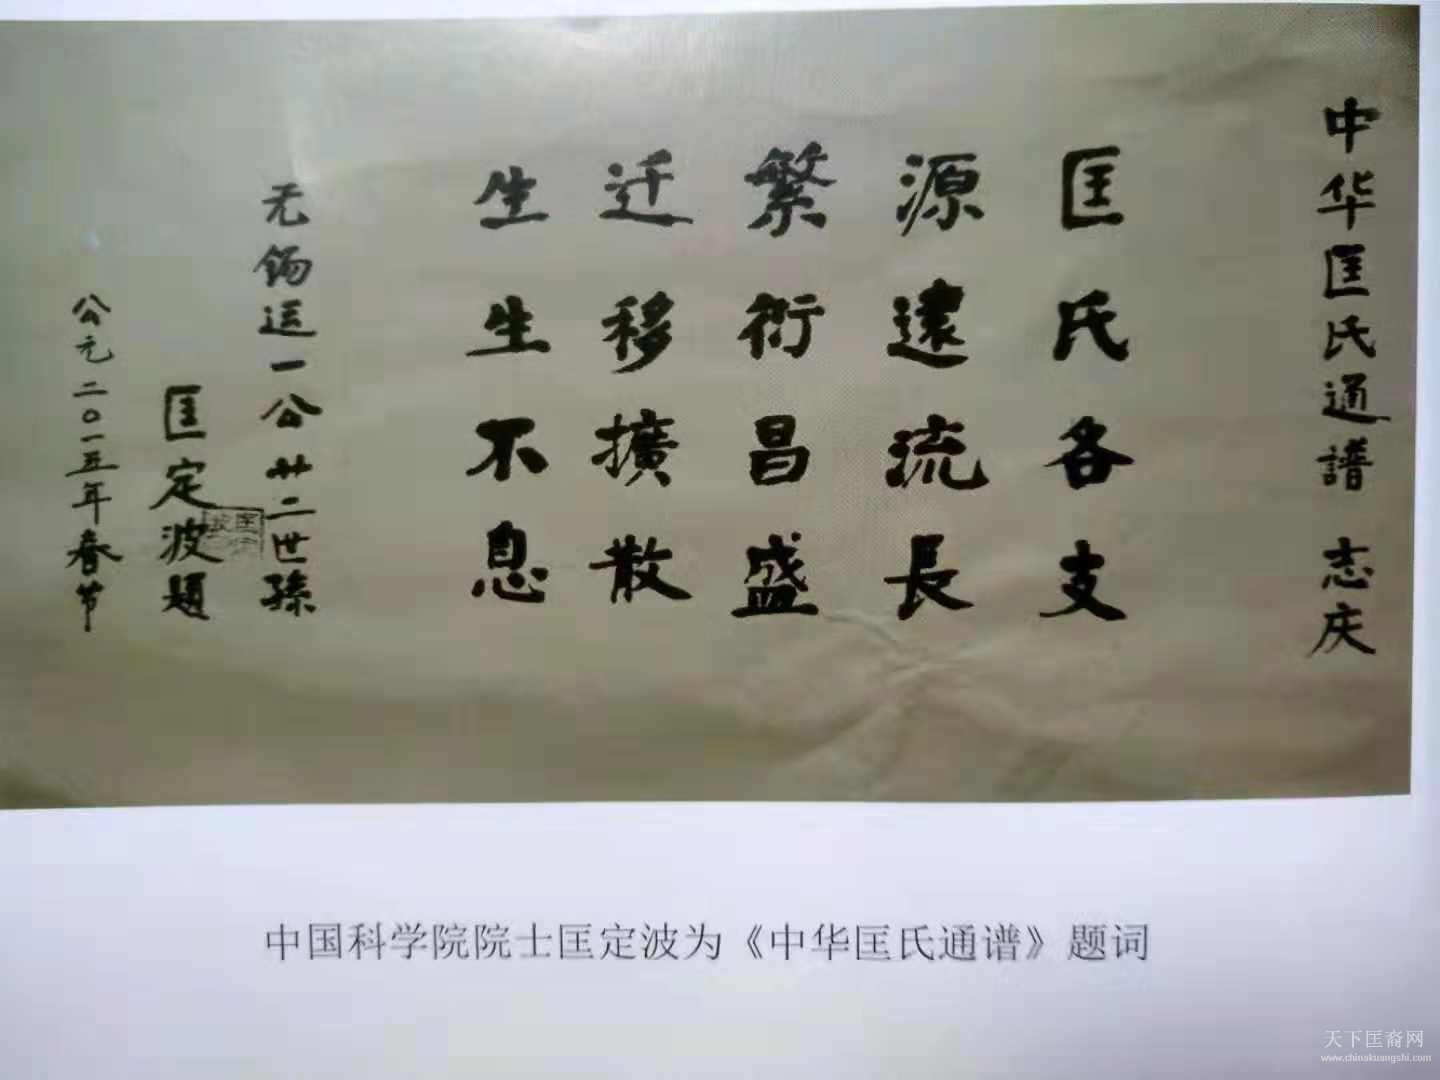 中华匡氏通譜 志庆
匡氏各支
源遠流長
繁衍昌盛
迁移擴散
生生不息
无锡运一公廿二世孫
匡定波題
公元二〇一五年春节
中国科学院院士匡定波为《中华匡氏通谱》题词
天下匡裔网
www.chinakuangshi.com